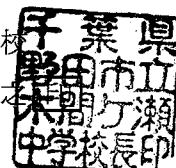 千葉県
野田市立
木間ケ瀬
中学校長印
校